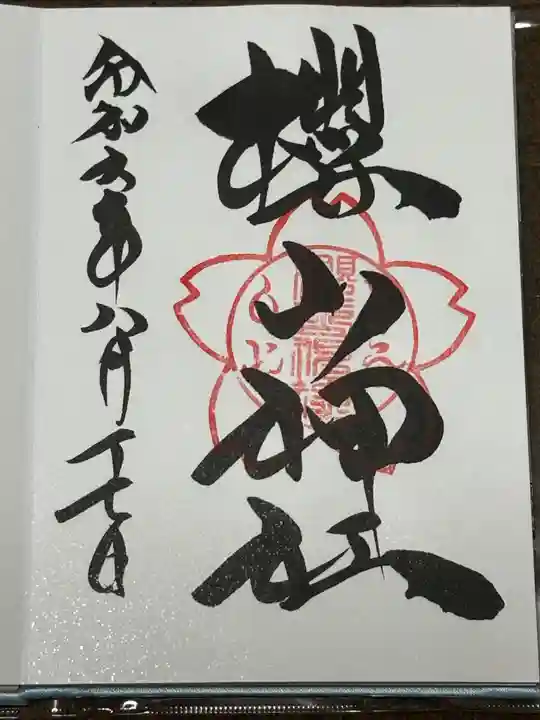 櫻山神社
令和六年八月十七日